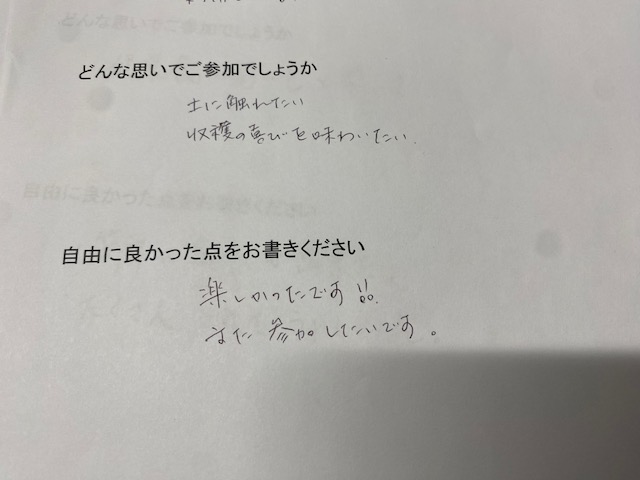 どんな思いでご参加でしょうか
土に触れたい
収穫の喜びを味わいたい.
自由に良かった点をお書きください
楽しかったです!!
また参加したいです。